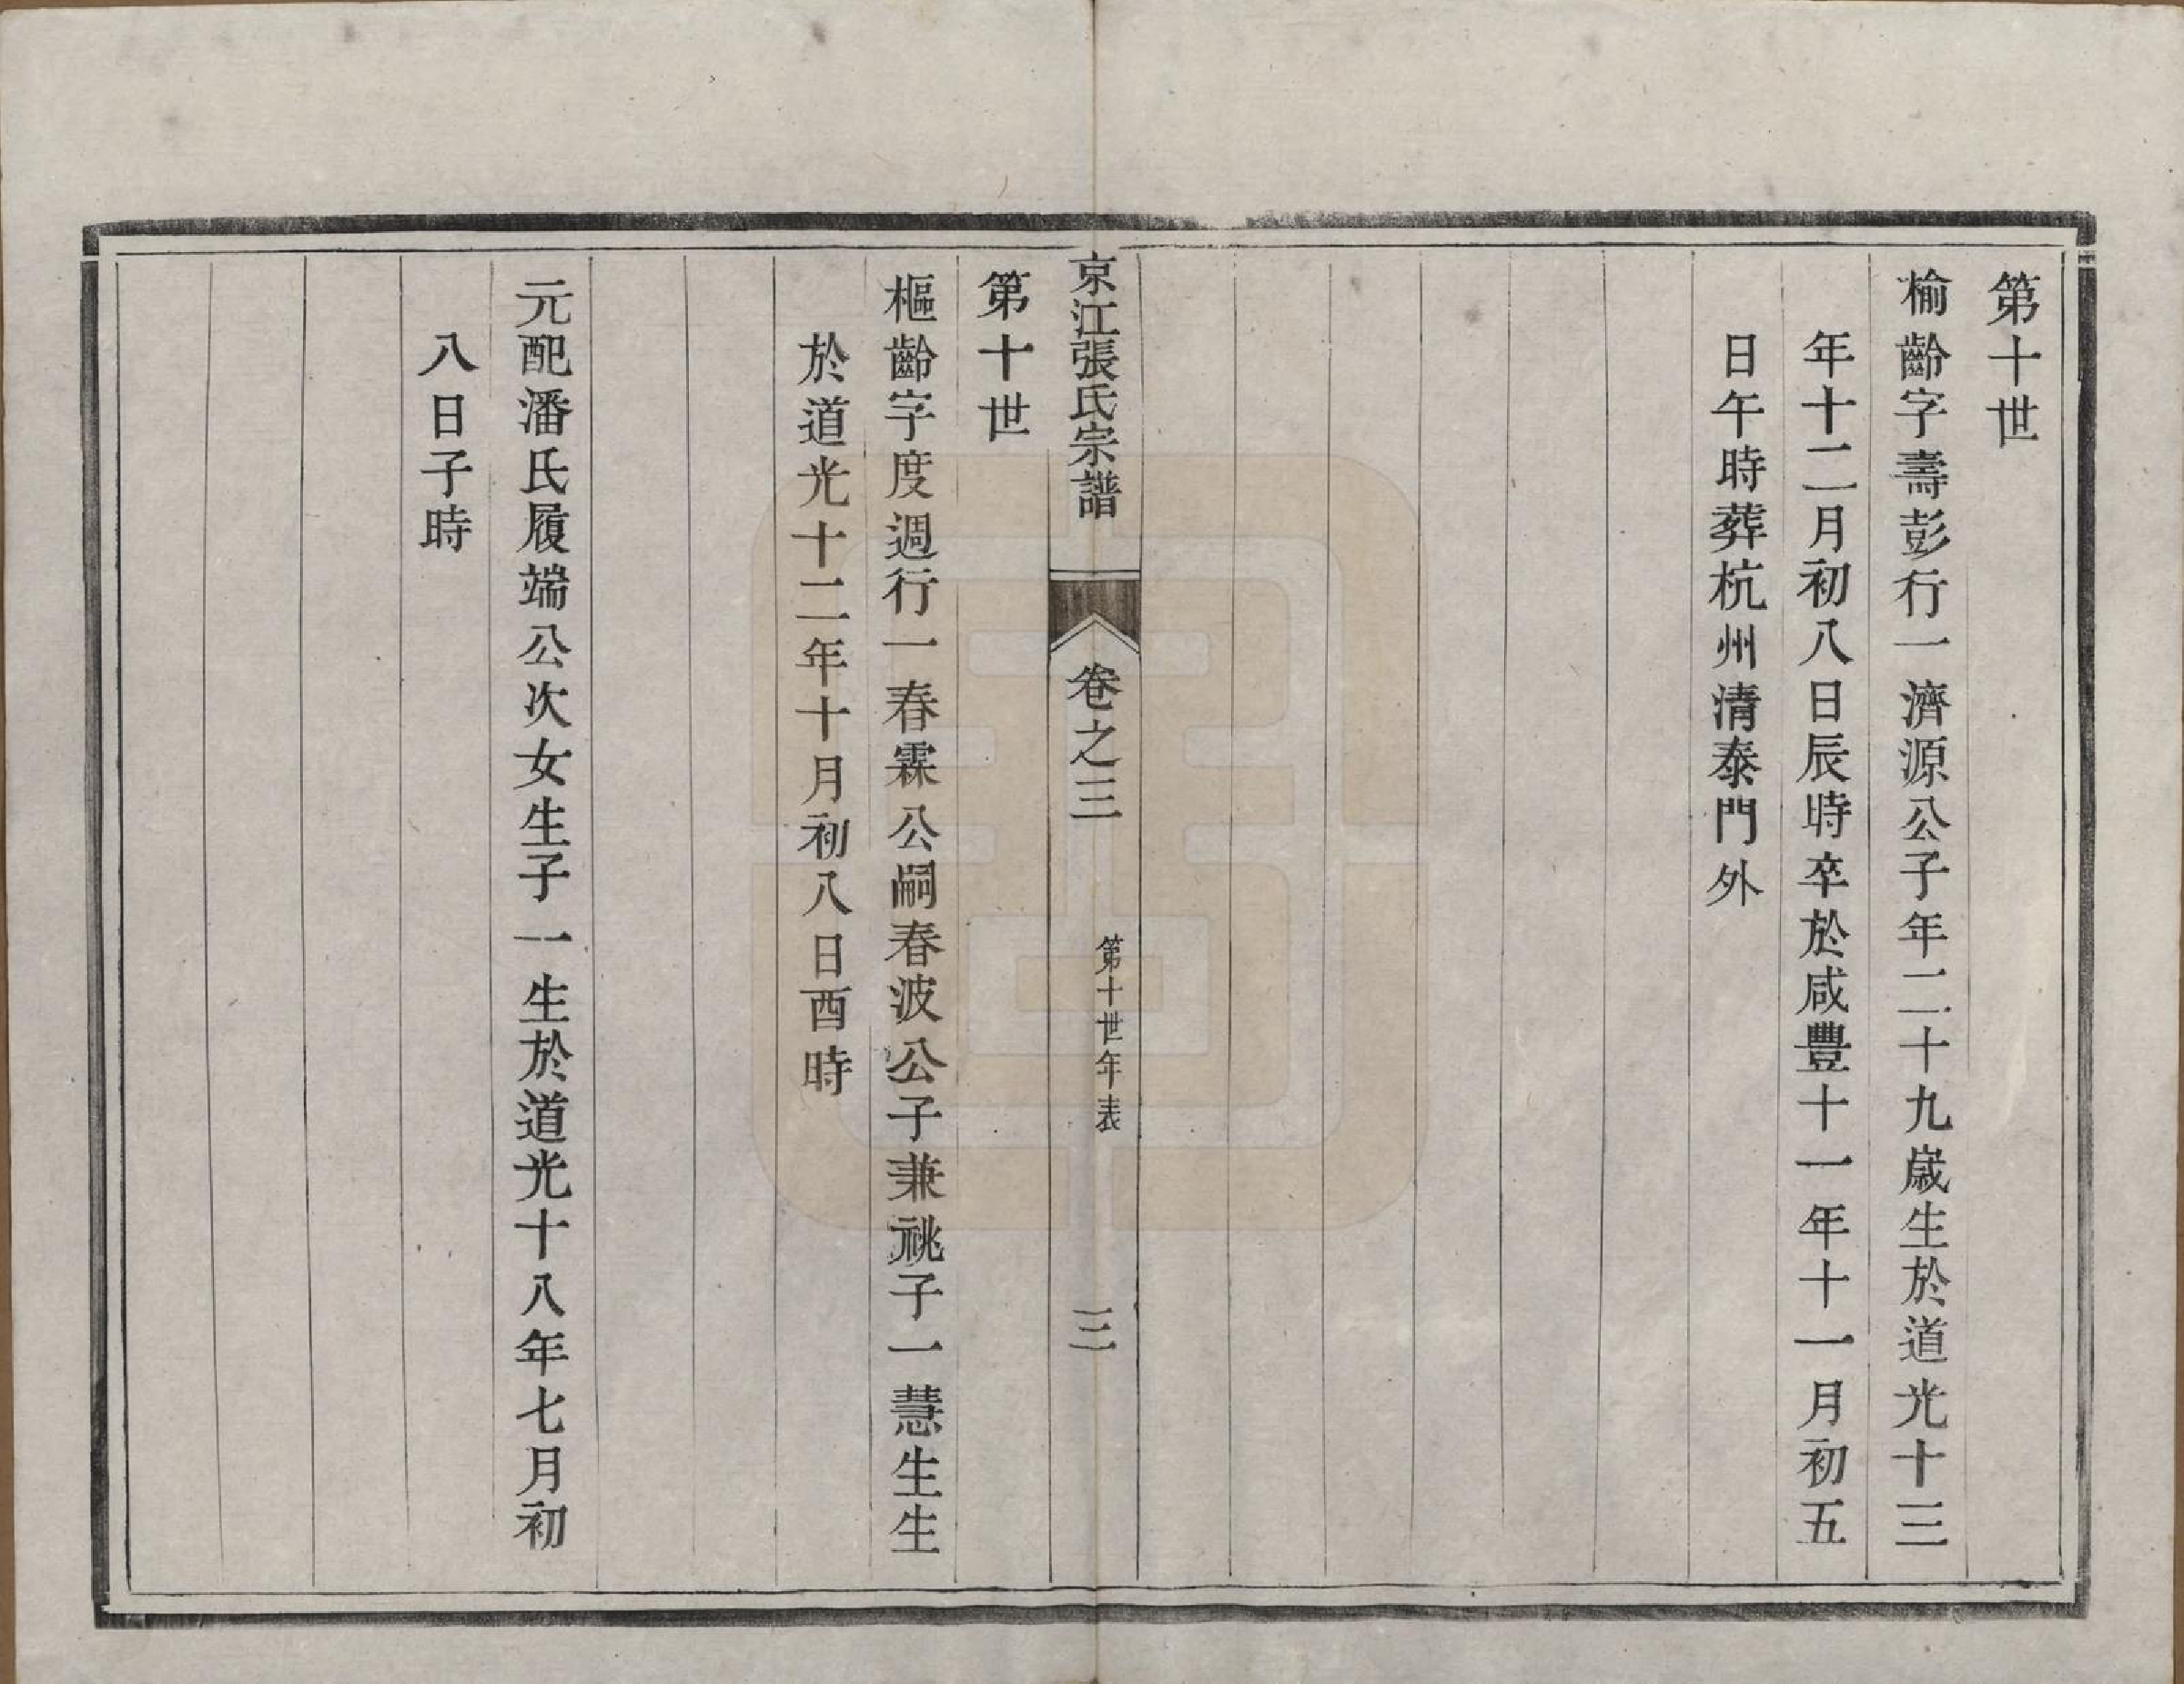 第十世
榆齡字壽彭行一濟源公子年二十九歲生於道光十三
年十二月初八日辰時卒於咸豐十一年十一月初五
日午時葬杭州清泰門外
京江張氏宗譜
卷之三
第十世年表
三
第十世
樞齡字度週行一春霖公嗣春波公子兼祧子一慧生生
於道光十二年十月初八日酉時
元配潘氏履端公次女生子一生於道光十八年七月初
八日子時